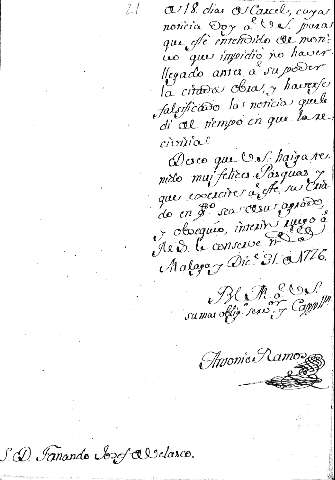 21
de 18 dias de Carcel, cuya
noticia doy à VS. para
que esté entendido del moti-
vo que impidió no haver
llegado antes à su poder
la citada obra, y haverse
falsificado la noticia que le
di del tiempo en que la re-
civiria.
Deseo que VS. haiga te-
nido mui felices Pasquas, y
que exercite à este su Cria-
do en quanto sea de su agrado,
y obsequio, interin ruego à
N. S. le conserve
Malaga y Dic.e 31. de 1776.
BL M. de VS.
su mas oblig.º serv.or y Capp.n
Antonio Ramos
S. D. Fernando Jozef de Velasco.